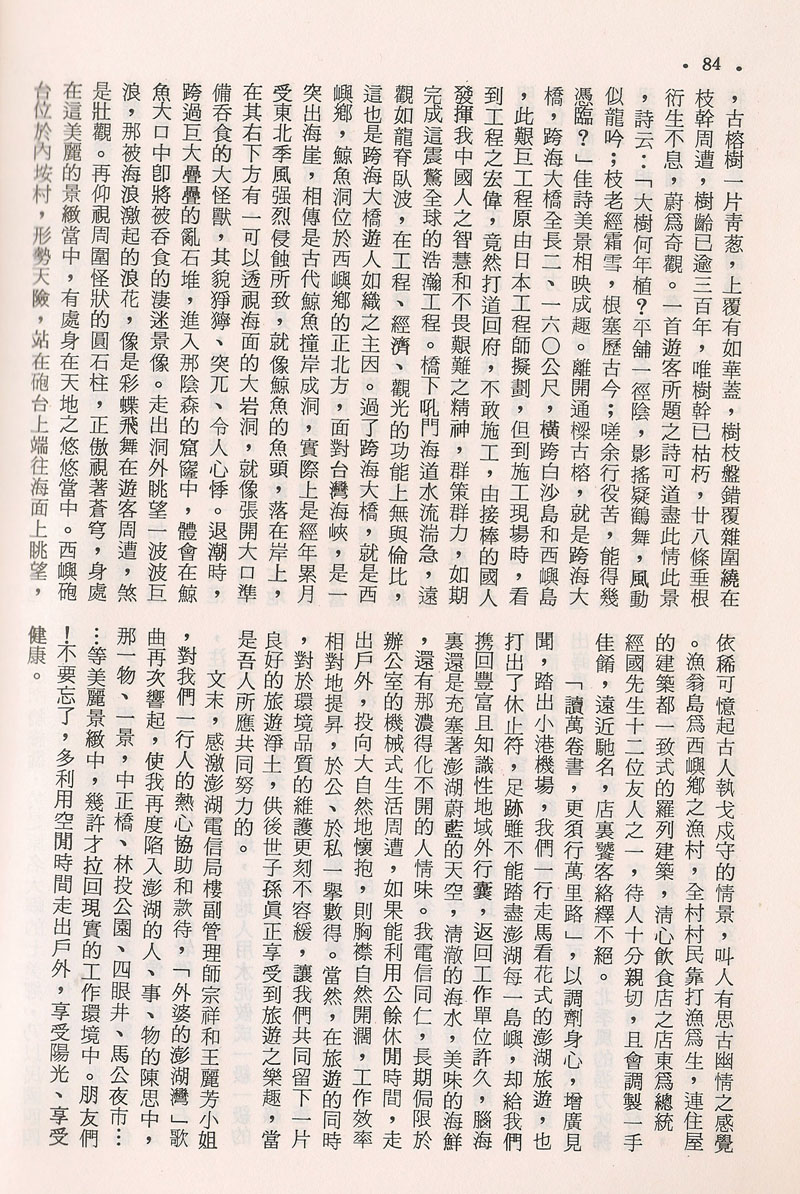 • 84 •
，古榕樹一片靑葱，上覆有如華蓋，樹枝盤錯覆雜圍繞在
枝幹周遭，樹齡已逾三百年，唯樹幹已枯朽，廿八條垂根
衍生不息，蔚爲奇觀。一首遊客所題之詩可道盡此情此景
，詩云：「大樹何年植？平舖一徑陰，影搖疑鶴舞，風動
似龍吟；枝老經霜雪，根塞歷古今；嗟余行役苦，能得幾
憑臨？」佳詩美景相映成趣。離開通樑古榕，就是跨海大
橋，跨海大橋全長二、一六〇公尺，橫跨白沙島和西嶼島
，此艱巨工程原由日本工程師擬劃，但到施工現場時，看
到工程之宏偉，竟然打道回府，不敢施工，由接棒的國人
發揮我中國人之智慧和不畏艱難之精神，群策群力，如期
完成這震驚全球的浩瀚工程。橋下吼門海道水流湍急，遠
觀如龍脊臥波，在工程、經濟、觀光的功能上無與倫比，
這也是跨海大橋遊人如織之主因。過了跨海大橋，就是西
嶼鄉，鯨魚洞位於西嶼鄉的正北方，面對台灣海峽，是一
突出海崖，相傳是古代鯨魚撞岸成洞，實際上是經年累月
受東北季風强烈侵蝕所致，就像鯨魚的魚頭，落在岸上，
在其右下方有一可以透視海面的大岩洞，就像張開大口準
備吞食的大怪獸，其貌猙獰、突兀、令人心悸。退潮時，
跨過巨大疊疊的亂石堆，進入那陰森的窟窿中，體會在鯨
魚大口中卽將被吞食的淒迷景像。走出洞外眺望一波波巨
浪，那被海浪激起的浪花，像是彩蝶飛舞在遊客周遭，煞
是壯觀。再仰視周圍怪狀的圓石柱，正傲視著蒼穹，身處
在這美麗的景緻當中，有處身在天地之悠悠當中。西嶼砲
台位於內垵村，形勢天險，站在砲台上端往海面上眺望，
依稀可憶起古人執戈戍守的情景，叫人有思古幽情之感覺
。漁翁島爲西嶼鄉之漁村，全村村民靠打漁爲生，連住屋
的建築都一致式的羅列建築，淸心飮食店之店東爲總統
經國先生十二位友人之一，待人十分親切，且會調製一手
佳餚，遠近馳名，店裏饕客絡繹不絕。
「讀萬卷書，更須行萬里路」，以調劑身心，增廣見
聞，踏出小港機場，我們一行走馬看花式的澎湖旅遊，也
打出了休止符，足跡雖不能踏盡澎湖每一島嶼，却給我們
携回豐富且知識性地域外行囊，返回工作單位許久，腦海
裏還是充塞著澎湖蔚藍的天空，淸澈的海水，美味的海鮮
，還有那濃得化不開的人情味。我電信同仁，長期侷限於
辦公室的機械式生活周遭，如果能利用公餘休閒時間，走
出戶外，投向大自然地懷抱，則胸襟自然開濶，工作效率
相對地提昇，於公、於私一舉數得。當然，在旅遊的同時
，對於環境品質的維護更刻不容緩，讓我們共同留下一片
良好的旅遊淨土，供後世子孫眞正享受到旅遊之樂趣，當
是吾人所應共同努力的。
文末，感激澎湖電信局樓副管理師宗祥和王麗芳小姐
，對我們一行人的熱心協助和款待，「外婆的澎湖灣」歌
曲再次響起，使我再度陷入澎湖的人、事、物的陳思中，
那一物、一景，中正橋、林投公園、四眼井、馬公夜市…
…等美麗景緻中，幾許才拉回現實的工作環境中。朋友們
！不要忘了，多利用空閒時間走出戶外，享受陽光、享受
健康。